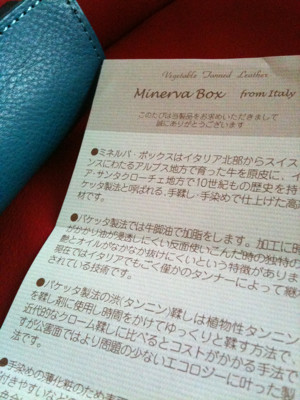 Vegetable Tanned Leather
Minerva Box from Italy
このたびは当製品をお求めいただきまして
誠にありがとうございます
●ミネルバ・ボックスはイタリア北部からスイス
ンスにわたるアルプス地方で育った牛を原皮に、イ
ア・サンタクローチェ地方で10世紀もの歴史を持
ケッタ製法と呼ばれる、手鞣し・手染めで仕上げた高
材です。
●バケッタ製法では牛脚油で加脂をします。加工に時
がかかり油が浸透しにくい反面使いこんだ時の独特の
艶とオイルがなかなか抜けにくいという特徴がありま
現在ではイタリアでもごく僅かのタンナーによって継
されている技術です。
●バケッタ製法の渋(タンニン)鞣しは植物性タンニン
を鞣し剤に使用し時間をかけてゆっくりと鞣す方法で、
近代的なクローム鞣しに比べるとコストがかかる手法で
すが公害面ではより問題の少ないエコロジーに叶った製
法です。
●手染めの薄化粧のため素
付きやすいなど